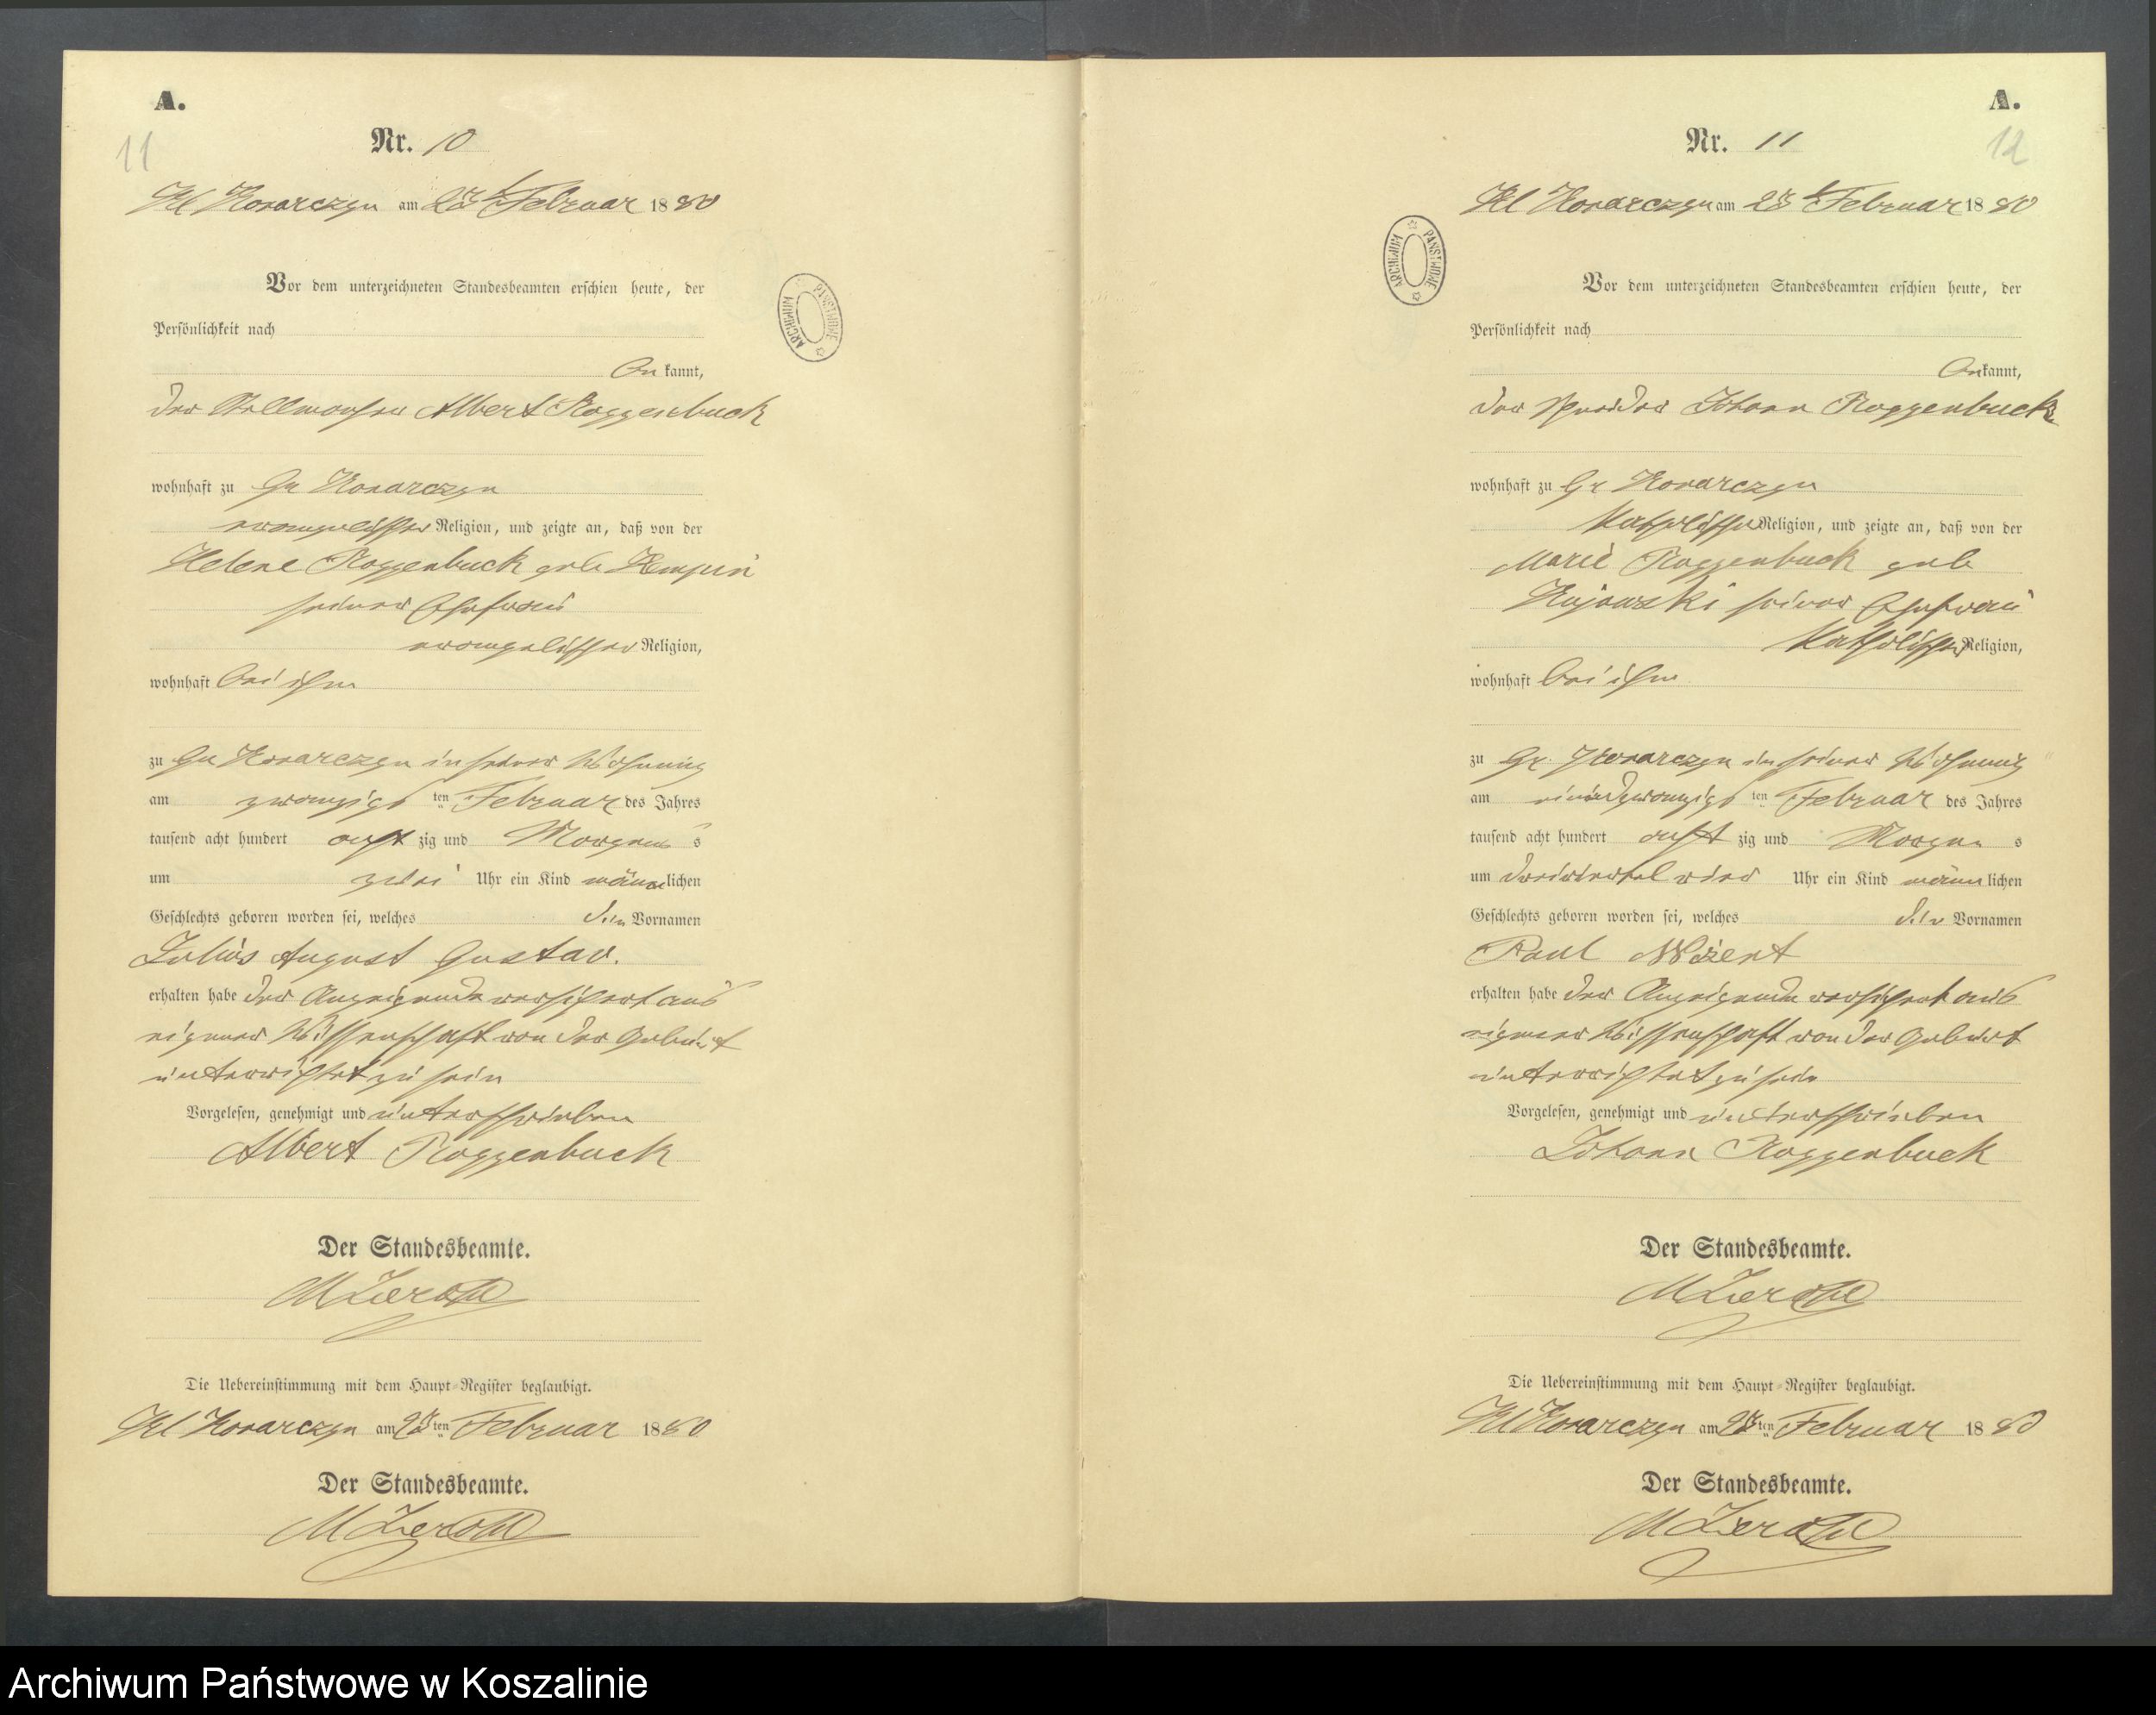 A.
11
Nr. 10
Kl Konarczyn am 23 t Februar 1880
Vor dem unterzeichneten Standesbeamten erschien heute, der
Persönlichkeit nach
bekannt,
der Stellmacher Albert Roggenbuck
wohnhaft zu Gr Konarczyn
evangelischer Religion, und zeigte an, daß von der
Helene Roggenbuck geb
seiner Ehefrau
evangelischer Religion,
wohnhaft bei ihm
zu Gr Konarczyn in seiner Wohnung
am zwanzigsten Februar des Jahres
tausend acht hundert achtzig und Morgens
um zwei Uhr ein Kind männlichen
Geschlechts geboren worden sei, welches den Vornamen
Julius August Gustav.
erhalten habe der Anzeigende versichert aus
eigener Wissenschaft von der Geburt
unterrichtet zu sein
Vorgelesen, genehmigt und unterschrieben
Albert Roggenbuck
Der Standesbeamte.
Die Uebereinstimmung mit dem Haupt-Register beglaubigt.
Kl Konarczyn am 23ten Februar 1880
Der Standesbeamte.
ARCHIWUM PAŃSTWOWE
A.
12
Nr. 11
Kl Konarczyn am Februar 1880
Vor dem unterzeichneten Standesbeamten erschien heute, der
Persönlichkeit nach
bekannt,
der Johann Roggenbuck
wohnhaft zu Gr Konarczyn
katholischer Religion, und zeigte an, daß von der
Marie Roggenbuck geb
seiner Ehefrau
katholischer Religion,
wohnhaft bei ihm
zu Gr. Konarczyn in seiner Wohnung
am einundzwanzigsten Februar des Jahres
tausend acht hundert achtzig und Morgens
um dreiviertel vier Uhr ein Kind männlichen
Geschlechts geboren worden sei, welches den Vornamen
Paul
erhalten habe der Anzeigende versichert aus
eigener Wissenschaft von der Geburt
unterrichtet zu sein
Vorgelesen, genehmigt und unterschrieben
Johann Roggenbuck
Der Standesbeamte.
Die Uebereinstimmung mit dem Haupt-Register beglaubigt.
Kl Konarczyn am Februar 1880
Der Standesbeamte.
ARCHIWUM PAŃSTWOWE
Archiwum Państwowe w Koszalinie